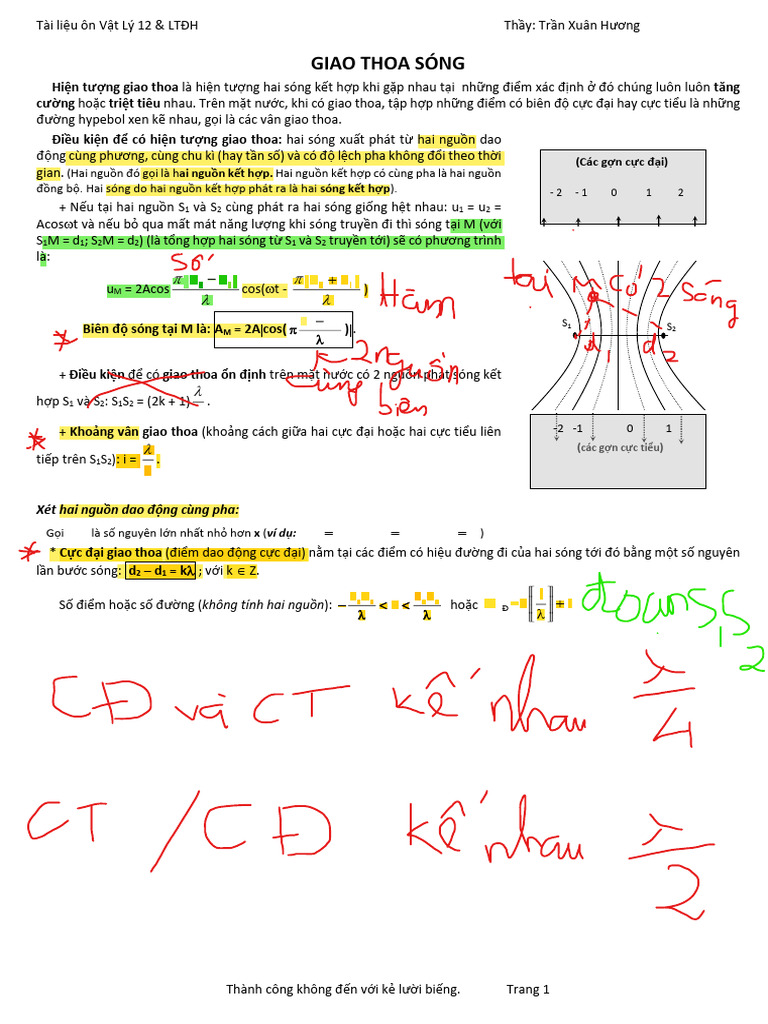 Tài liệu ôn Vật Lý 12 & LTĐH Thầy: Trần Xuân Hương
GIAO THOA SÓNG
Hiện tượng giao thoa là hiện tượng hai sóng kết hợp khi gặp nhau tại những điểm xác định ở đó chúng luôn luôn tăng
cường hoặc triệt tiêu nhau. Trên mặt nước, khi có giao thoa, tập hợp những điểm có biên độ cực đại hay cực tiểu là những
đường hypebol xen kẽ nhau, gọi là các vân giao thoa.
Điều kiện để có hiện tượng giao thoa: hai sóng xuất phát từ hai nguồn dao
động cùng phương, cùng chu kì (hay tần số) và có độ lệch pha không đổi theo thời
gian. (Hai nguồn đó gọi là hai nguồn kết hợp. Hai nguồn kết hợp có cùng pha là hai nguồn
đồng bộ. Hai sóng do hai nguồn kết hợp phát ra là hai sóng kết hợp).
+ Nếu tại hai nguồn S1 và S2 cùng phát ra hai sóng giống hệt nhau: u1 = u2 =
Acosωt và nếu bỏ qua mất mát năng lượng khi sóng truyền đi thì sóng tại M (với
S1M = d1; S2M = d2) (là tổng hợp hai sóng từ S1 và S2 truyền tới) sẽ có phương trình
là:
số
uM = 2Acos π − λ cos(ωt - π + λ )
Hàm
Biên độ sóng tại M là: AM = 2A|cos( π − λ )|.
2 nguồn
cùng
biên
+ Điều kiện để có giao thoa ổn định trên mặt nước có 2 nguồn phát sóng kết
hợp S1 và S2: S1S2 = (2k + 1) λ .
+ Khoảng vân giao thoa (khoảng cách giữa hai cực đại hoặc hai cực tiểu liên
tiếp trên S1S2): i = λ .
(Các gợn cực đại)
- 2 - 1 0 1 2
tại M có 2 sóng
S1 S2
d1 d2
-2 -1 0 1
(các gợn cực tiểu)
Xét hai nguồn dao động cùng pha:
Gọi là số nguyên lớn nhất nhỏ hơn x (ví dụ: = = = )
* Cực đại giao thoa (điểm dao động cực đại) nằm tại các điểm có hiệu đường đi của hai sóng tới đó bằng một số nguyên
lần bước sóng: d2 – d1 = kλ ; với k ∈ Z.
Số điểm hoặc số đường (không tính hai nguồn): − λ < < λ hoặc Đ = [ λ ] +
đoạn S1S2
CĐ và CT kế nhau λ/4
CT / CĐ kế nhau λ/2
Thành công không đến với kẻ lười biếng. Trang 1